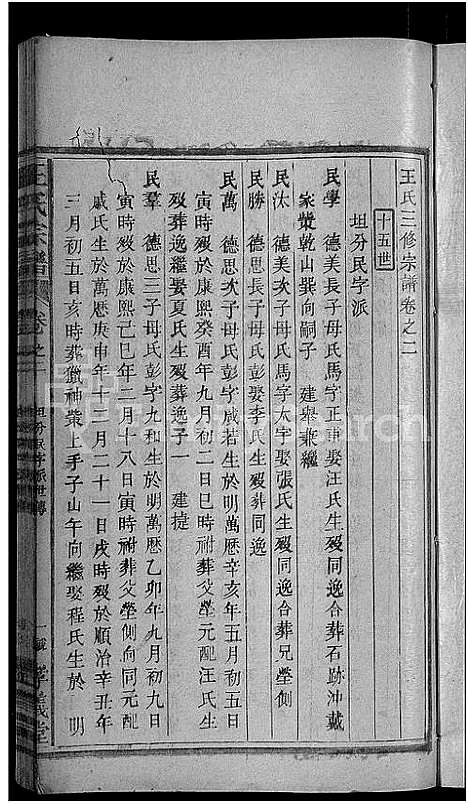 王氏三修宗譜卷之二
十五世
坦分民字派
民學 德美長子母氏馬字正東娶汪氏生歿同逸合葬石跡冲戴
家塋乾山巽向嗣子 建舉兼繼
民汰 德美次子母氏馬字太字娶張氏生歿同逸合葬兄塋側
民勝 德思長子母氏彭娶李氏生歿葬同逸
民萬 德思次子母氏彭字成若生於明萬曆辛亥年五月初五日
寅時歿於康熙癸酉年九月初二日巳時祔葬父塋元配汪氏生
歿葬逸繼娶夏氏生歿葬逸子一 建㨗
民羣 德思三子母氏彭字九和生於明萬曆乙卯年九月初九日
寅時歿於康熙己巳年二月十八日寅時祔葬父塋側向同元配
戚氏生於萬曆庚申年十二月二十一日戌時歿於順治辛丑年
三月初五日亥時葬獵神柴上手子山午向繼娶程氏生於 明
王氏宗譜 卷之二 坦分民字派世傳